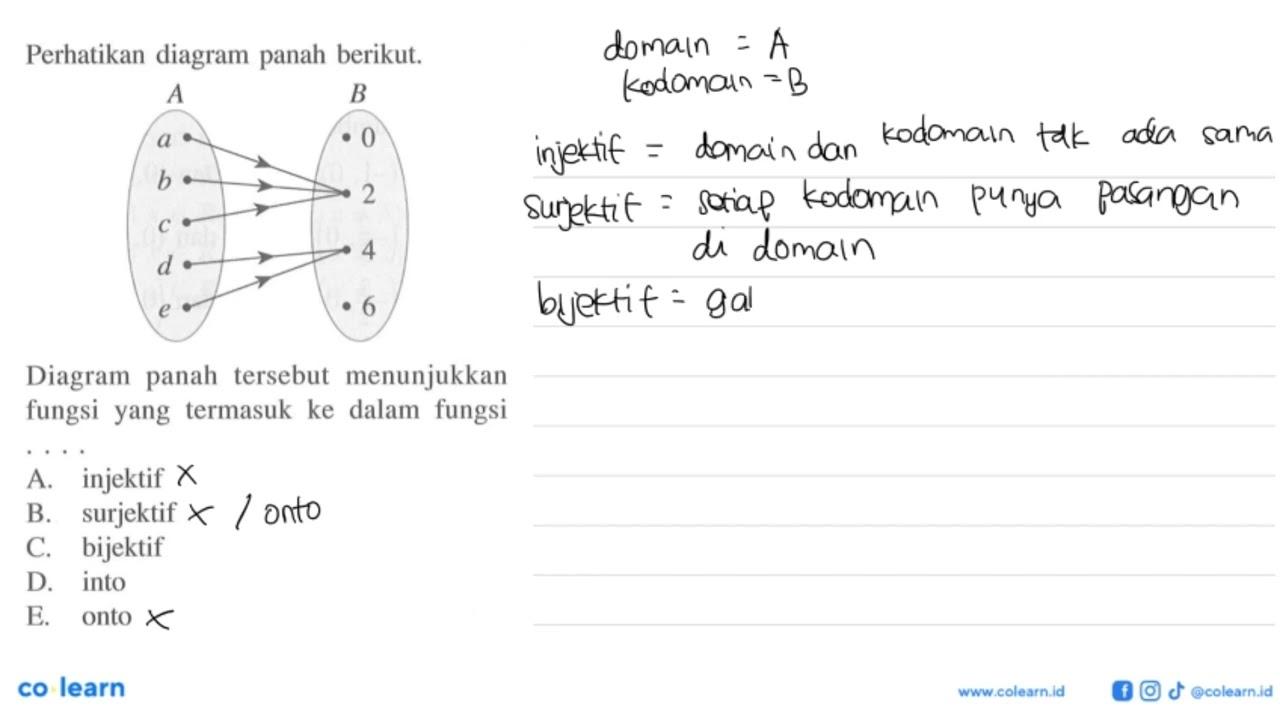 Perhatikan diagram panah berikut.
A B
a 0
b 2
c
d 4
e 6
Diagram panah tersebut menunjukkan
fungsi yang termasuk ke dalam fungsi
. . . .
A. injektif X
B. surjektif X / onto
C. bijektif
D. into
E. onto X
domain = A
kodomain = B
injektif = domain dan kodomain tdk ada sama
surjektif = setiap kodomain punya pasangan
di domain
bijektif = gal
co learn
www.colearn.id
@colearn.id